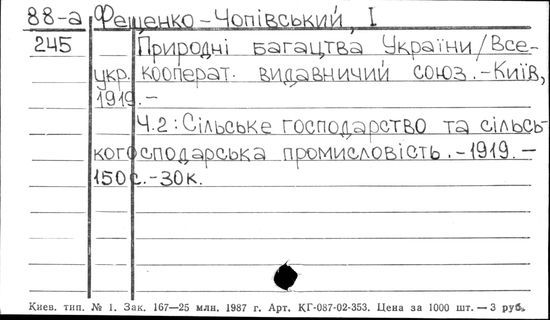 88-а Фещенко-Чопівський, І
245 Природні багацтва України/Все-
укр. кооперат. видавничий союз.-Київ,
1919.-
Ч.2: Сільське господарство та сільсь-
когосподарська промисловість.-1919.-
150с.-30к.
Киев. тип. № 1. Зак. 167—25 млн. 1987 г. Арт. КГ-087-02-353. Цена за 1000 шт. — 3 руб.